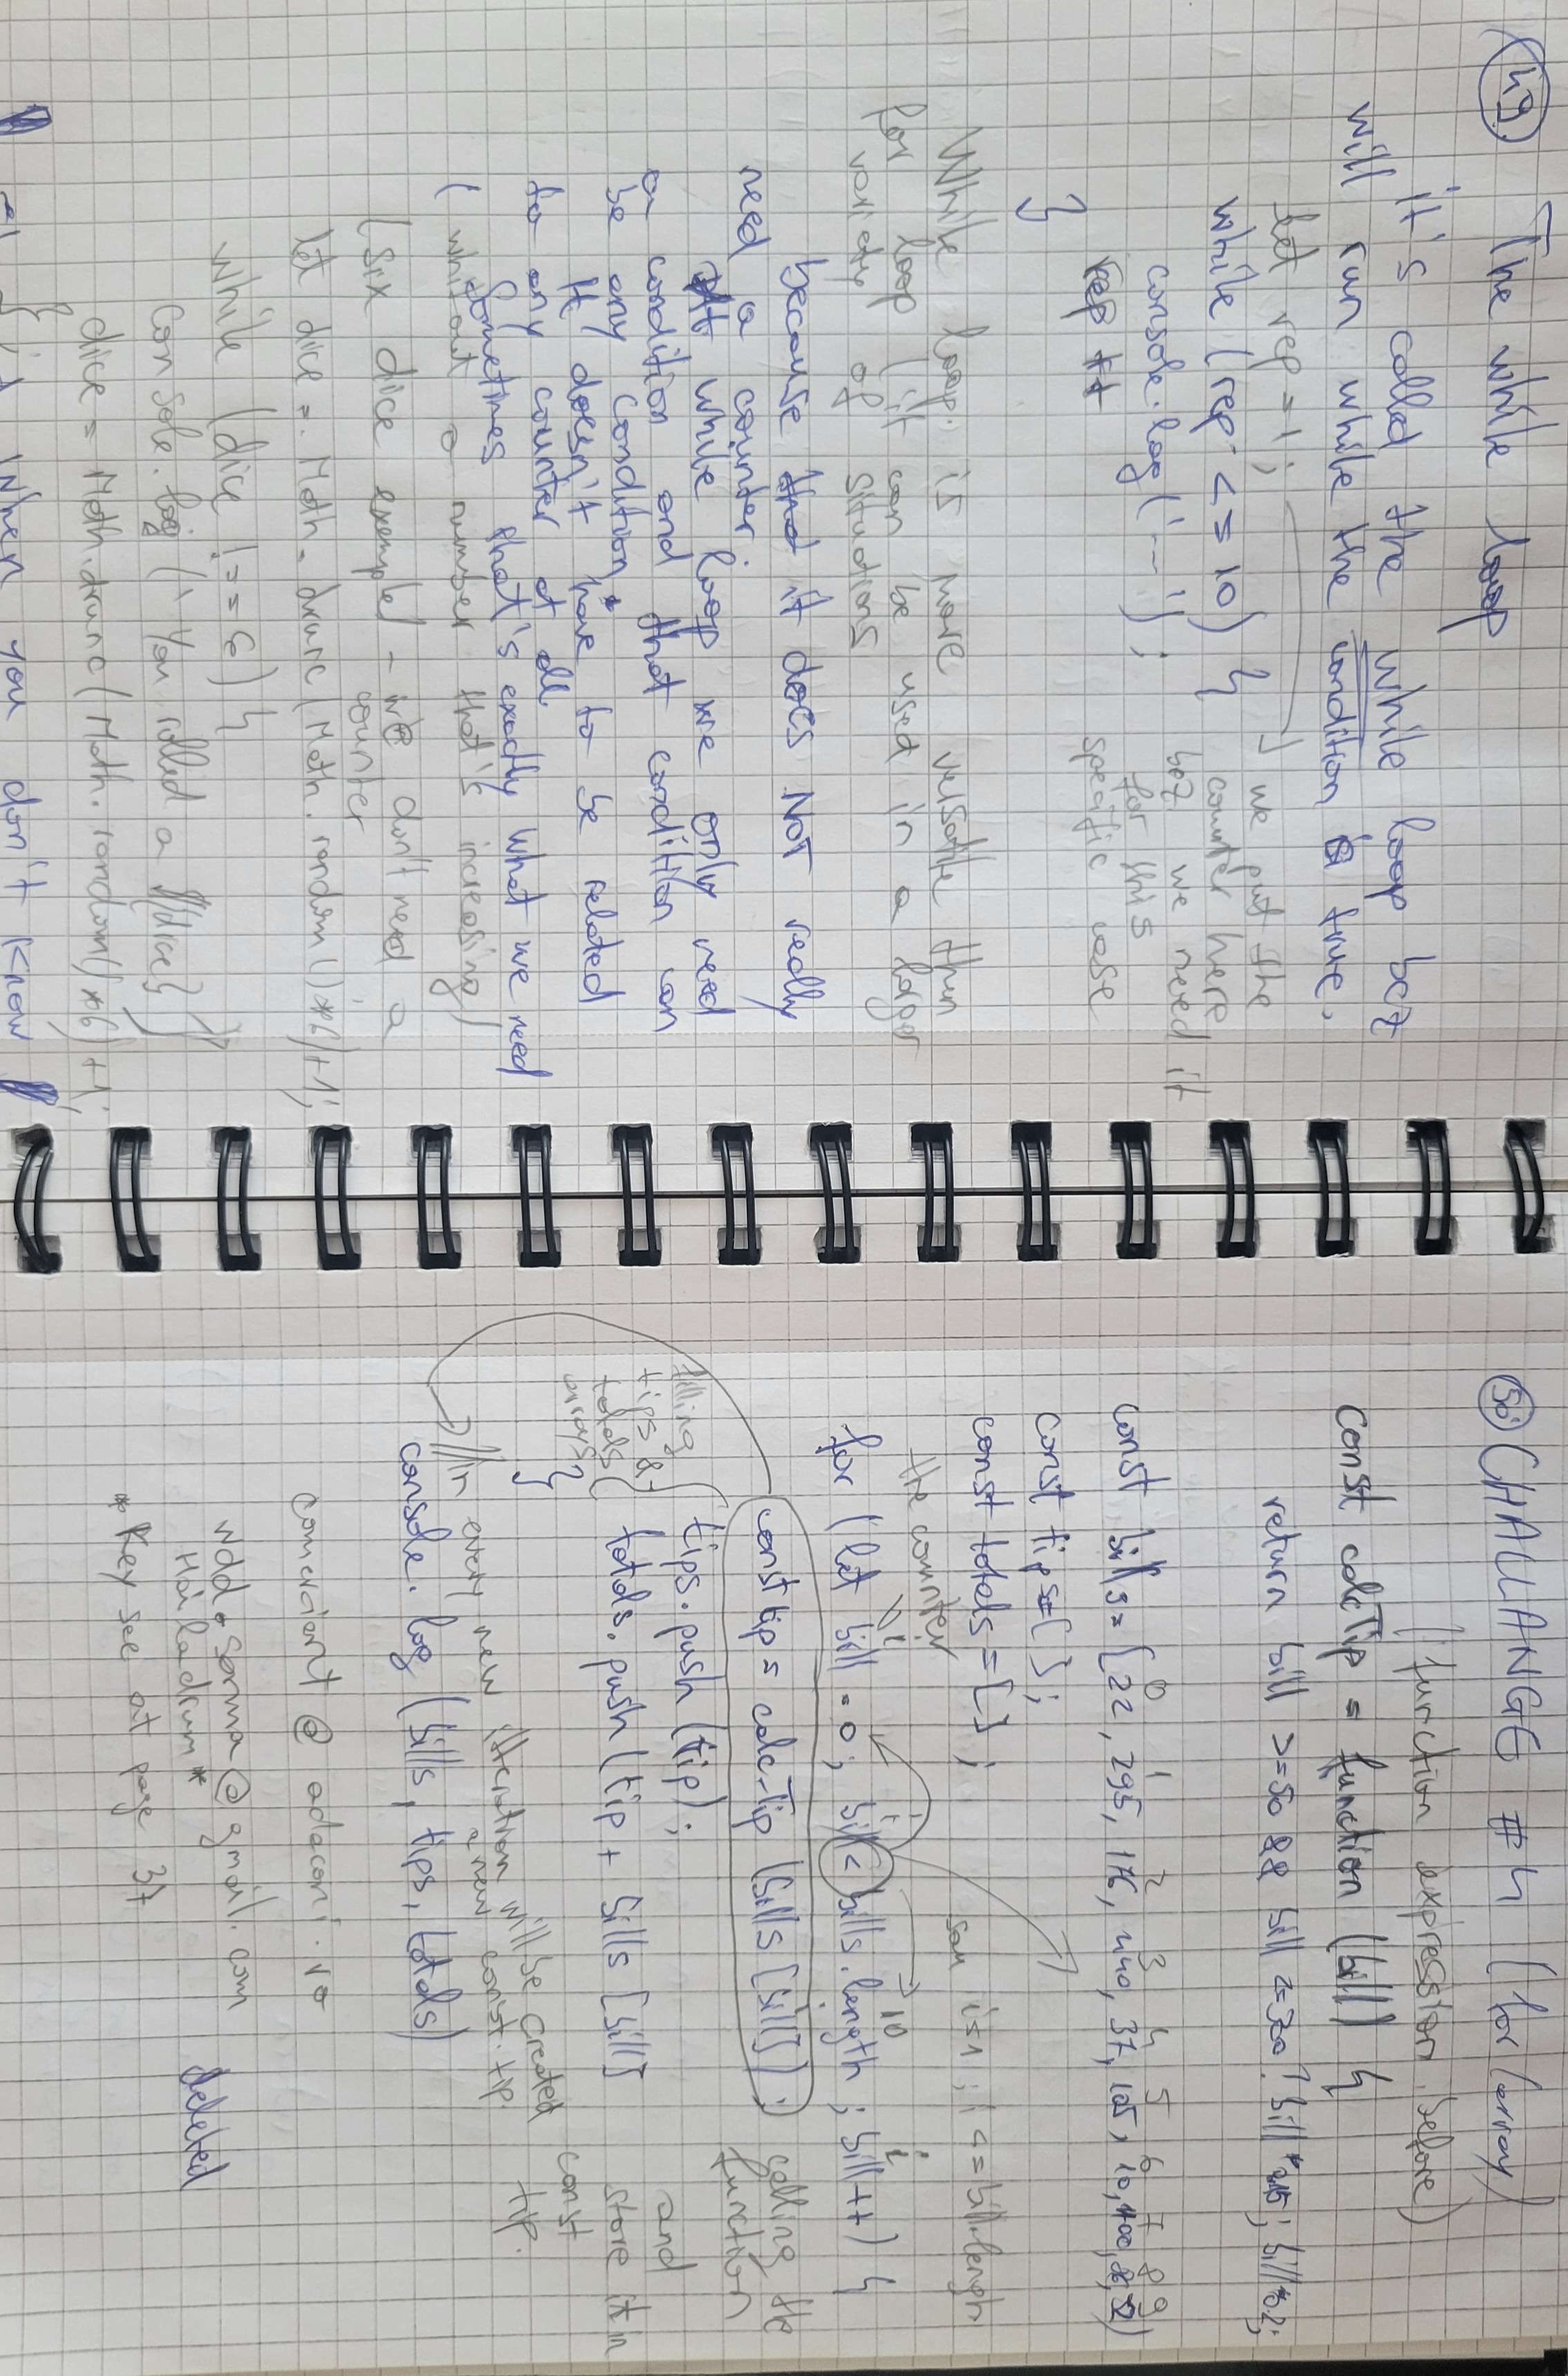 49.
The while loop
it's called the while loop bcz
will run while the condition is true.
let rep = 1;
while (rep <= 10) {
console.log('---');
rep ++
}
we put the
counter here
bcz we need it
for this
specific case
While loop is more versatile than
for loop (it can be used in a larger
variety of situations
because it does NOT really
need a counter.
while loop we only need
a condition and that condition can
be any condition.
It doesn't have to be related
to any counter at all
Sometimes that's exactly what we need
(without a number that's increasing)
(six dice example) - we don't need a
counter
let dice = Math.trunc(Math.random()*6)+1;
while (dice !== 6) {
console.log(`You rolled a ${dice}`)
dice = Math.trunc(Math.random()*6)+1;
}
when you don't know
50.
CHALLANGE #4 (for (array)
(function expression before)
const calcTip = function (bill) {
return bill >=50 && bill <=300 ? bill * 0.15; bill*0.2;
0 1 2 3 4 5 6 7 8 9
const bills= [22, 295, 176, 440, 37, 105, 10, 1100, 86, 52]
const tips=[];
const totals = [];
sau i=1; i<=bill.length
the counter
for (let bill = 0; bill < bills.length; bill++) {
i i i
10
const tip = calcTip (bills[bill]);
calling the
function
and
store it in
const
tip.
tips.push(tip);
totals.push(tip + bills[bill]
filling
tips &
totals
arrays
}
//in every new itteration will be created
a new const tip.
console.log (bills, tips, totals)
comercient@adacom.ro
wdd.sorma@gmail.com
Hailadrum*
deleted
*Key see at page 37